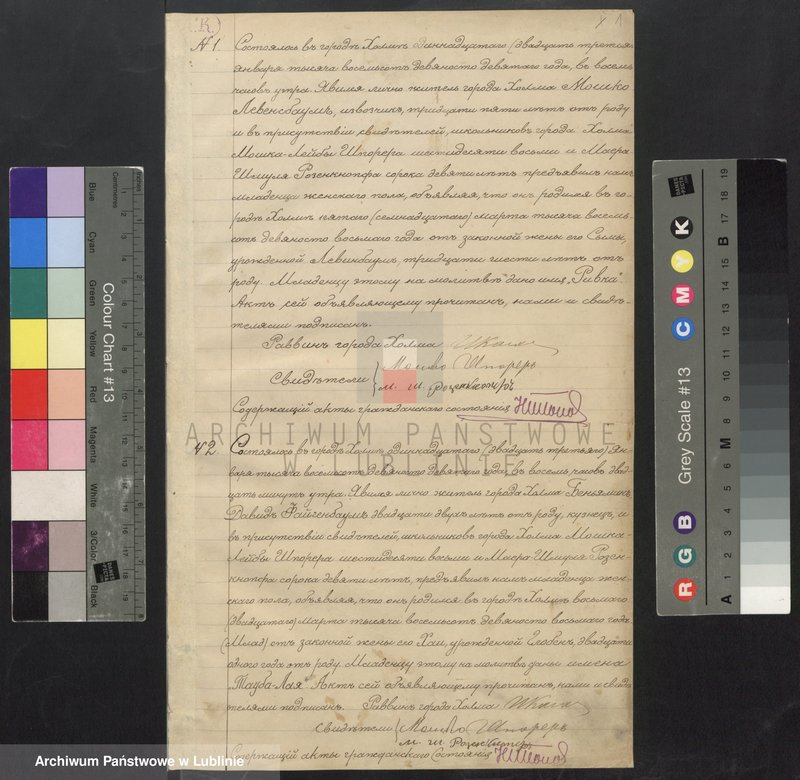 К)
1
N 1. Состоялось въ городѣ Холмѣ одиннадцатаго (двадцать третьяго)
января тысяча восемьсотъ девяносто девятаго года, въ восемь
часовъ утра. Явился лично житель города Холма Мошко
Левенбаумъ, извозчикъ, тридцати пяти лѣтъ отъ роду
и въ присутствіи свидѣтелей, школьниковъ города Холма
Мошка-Лейбы Шпорера шестидесяти восьми и Маера
Шмуля Розенкнопфа сорока девяти лѣтъ предъявилъ намъ
младенца женскаго пола, объявляя, что онъ родился въ го-
родѣ Холмѣ пятаго (семнадцатаго) марта тысяча восемь-
сотъ девяносто восьмаго года отъ законной жены его Сымы,
урожденной Левинбаумъ, тридцати шести лѣтъ отъ
роду. Младенцу этому на молитвѣ дано имя „Ривка".
Актъ сей объявляющему прочитанъ, нами и свидѣ-
телями подписанъ.
Раввинъ города Холма
Свидѣтели { Мошко Шпореръ
М. Ш. Розенкнопфъ
Содержащій акты гражданскаго состоянія
N 2. Состоялось въ городѣ Холмѣ одиннадцатаго (двадцать третьяго) Ян-
варя тысяча восемьсотъ девяносто девятаго года, въ восемь часовъ двад-
цать минутъ утра. Явился лично житель города Холма Беньяминъ
Давидъ Файгенбаумъ двадцати двухъ лѣтъ отъ роду, кузнецъ, и
въ присутствіи свидѣтелей, школьниковъ города Холма Мошка-
Лейбы Шпорера шестидесяти восьми и Маера Шмуля Розен-
кнопфа сорока девяти лѣтъ, предъявилъ намъ младенца жен-
скаго пола, объявляя, что онъ родился въ городѣ Холмѣ восьмаго
(двадцатаго) марта тысяча восемьсотъ девяносто восьмаго года
отъ законной жены его Хаи, урожденной двадцати
одного года отъ роду. Младенцу этому на молитвѣ даны имена
„Тауба-Лая". Актъ сей объявляющему прочитанъ, нами и свидѣ-
телями подписанъ. Раввинъ города Холма
Свидѣтели { Мошко Шпореръ
М. Ш. Розенкнопфъ
Содержащій акты гражданскаго состоянія
ARCHIWUM PAŃSTWOWE
W LUBLINIE
Archiwum Państwowe w Lublinie
Colour Chart #13
Blue
Cyan
Green
Yellow
Red
Magenta
White
3/Color
Black
Centimetres
Inches
Grey Scale #13
R G B
C M Y K
A 1 2 3 4 5 6 M 8 9 10 11 12 13 14 15 B 17 18 19